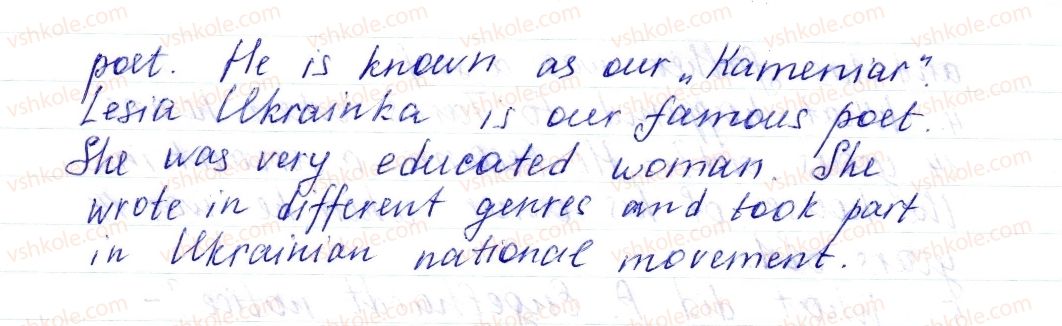 poet. He is known as our „Kameniar”.
Lesia Ukrainka is our famous poet.
She was very educated woman. She
wrote in different genres and took part
in Ukrainian national movement.